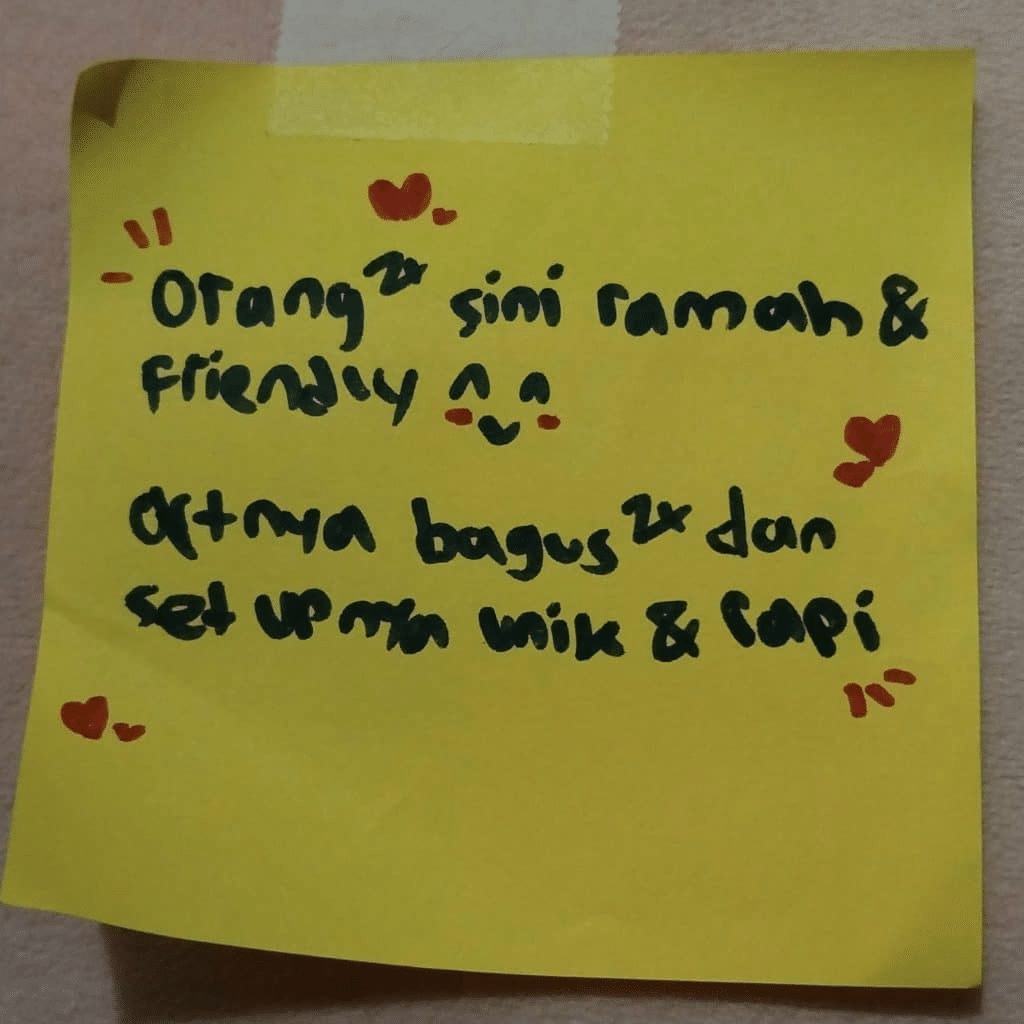 Orang²ˣ sini ramah &
friendly ^ ^
artnya bagus²ˣ dan
set upnya unik & rapi